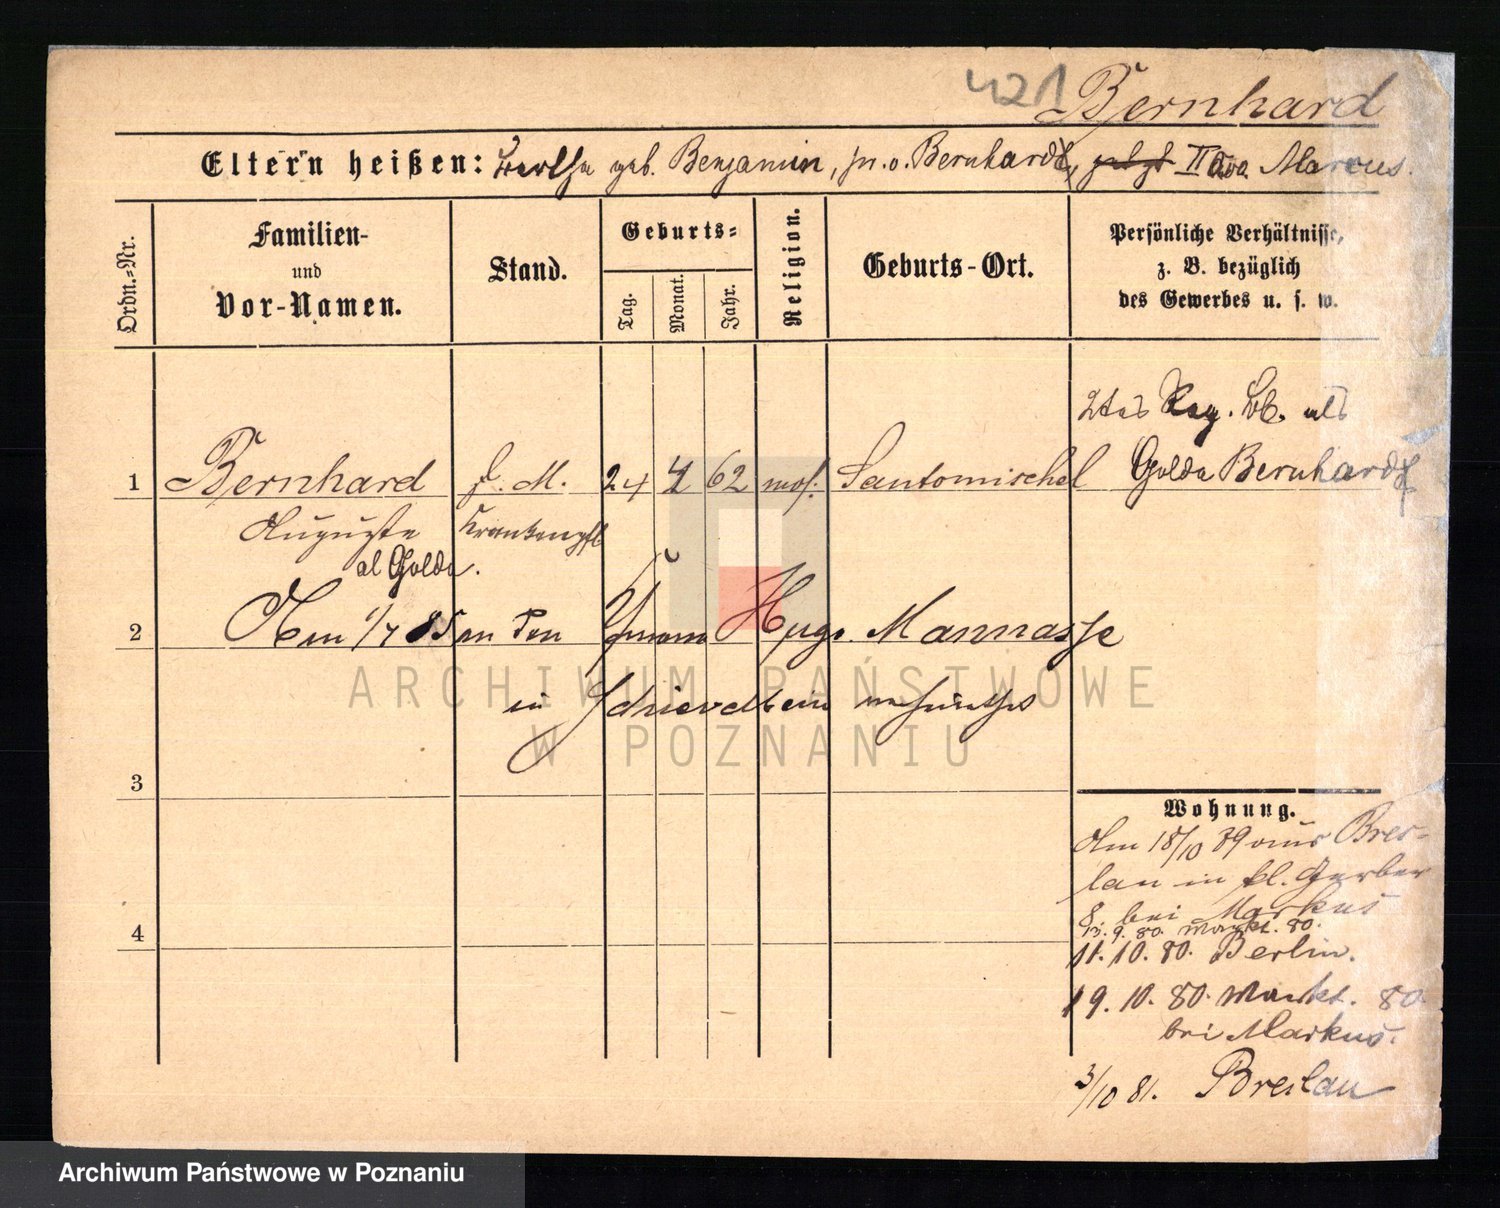 421 Bernhard
Eltern heißen: geb. Benjamin, Bernhardt, II Marcus.
Ordn.-Nr.
Familien-
und
Vor-Namen.
Stand.
Geburts-
Tag.
Monat.
Jahr.
Religion.
Geburts-Ort.
Persönliche Verhältnisse,
z. B. bezüglich
des Gewerbes u. s. w.
2tes Reg. als
Golda Bernhardt
1 Bernhard f. M. 24 4 62 mos. Santomischel
Auguste
al Golda.
2 Am 1/7 85 an den Hugo Mannasse
in Schievelbein
3
Wohnung.
Am 18/10 79 aus Bres-
lau in kl. Gerber
8 bei Markus
13. 9. 80. Markt. 80.
4
11. 10. 80. Berlin.
19. 10. 80. Markt. 80.
bei Markus.
3/10 81. Breslau
ARCHIWUM PAŃSTWOWE
W POZNANIU
Archiwum Państwowe w Poznaniu